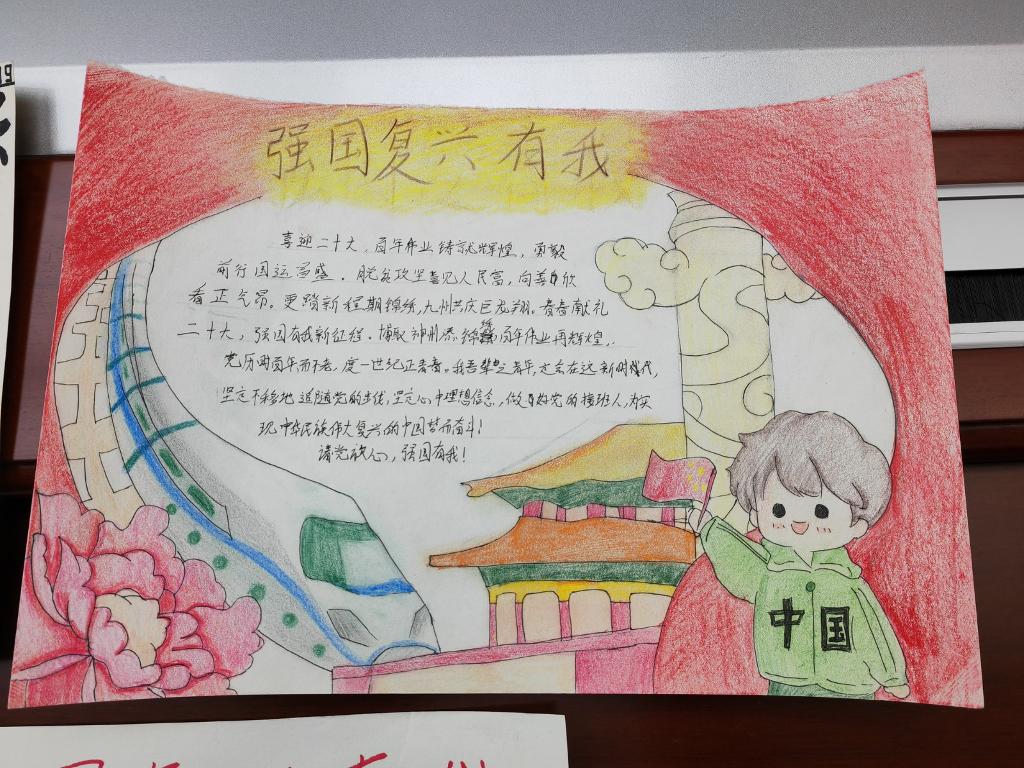 强国复兴有我
喜迎二十大，百年伟业铸就辉煌，勇毅
前行国运昌盛。脱贫攻坚喜见人民富，向善欣
看正气昂。更踏新程期锦绣，九州共庆巨龙翔。青春献礼
二十大，强国有我新征程。神州添锦绣，百年伟业再辉煌，.
党历两百年而不老，度一世纪正青春。我吾辈之青年，定会在这新时代，
坚定不移地追随党的步伐，坚定心中理想信念，做好党的接班人，为实
现中华民族伟大复兴的中国梦而奋斗！
请党放心，强国有我！
中国
19